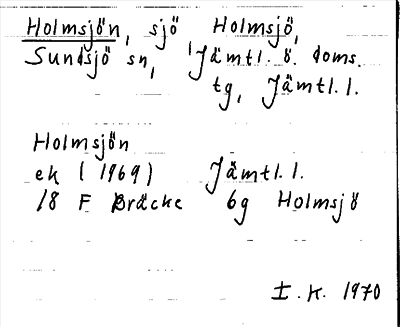 Holmsjön, sjö Holmsjö,
Sundsjö sn, Jämtl. ö. doms.
tg, Jämtl. l.
Holmsjön
ek (1969) Jämtl. l.
18 F Bräcke 6g Holmsjö
I. K. 1970